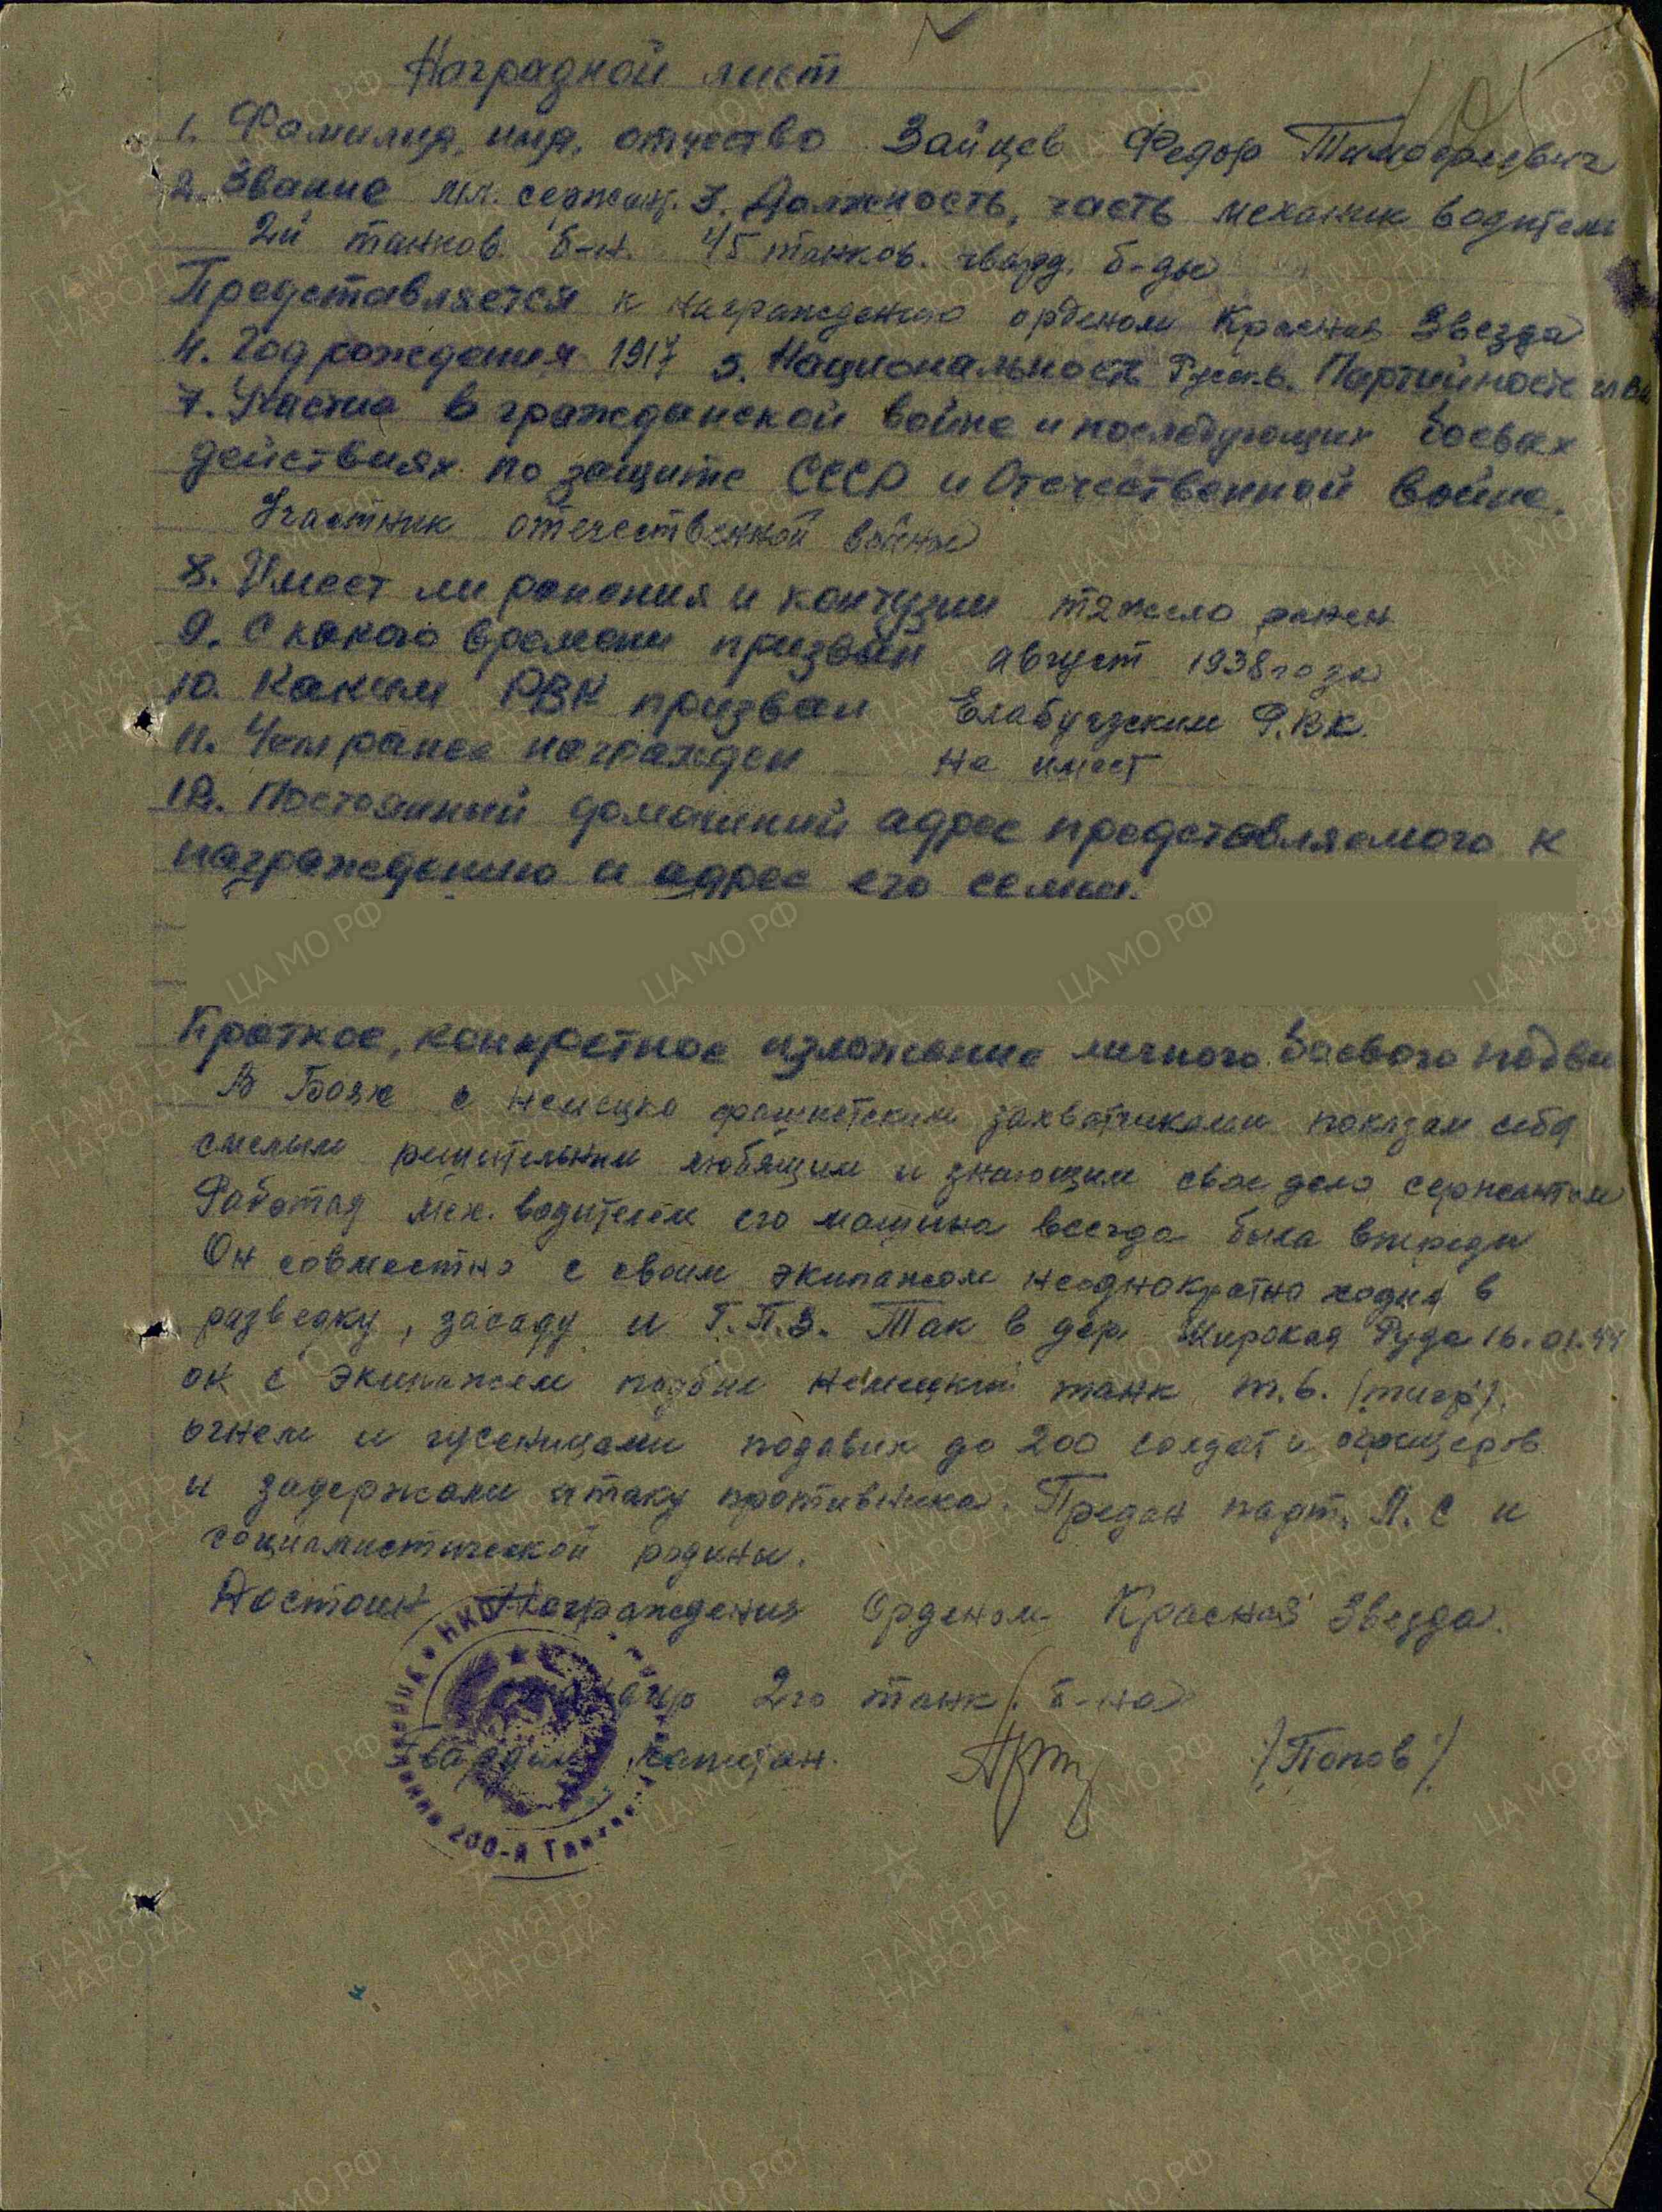 Наградной лист
1. Фамилия, имя, отчество Зайцев Федор Тимофеевич
2. Звание мл. сержант. 3. Должность, часть механик водитель
2й танков. б-н. 45 танков. гвард. б-ды
Представляется к награждению орденом Красная Звезда
4. Год рождения 1917 5. Национальность Русск. 6. Партийность чл ВК
7. Участие в гражданской войне и последующих боевых
действиях по защите СССР и Отечественной войне.
Участник отечественной войны
8. Имеет ли ранения и контузии тяжело ранен
9. С какого времени призван август 1938 года
10. Каким РВК призван Елабугским Р.В.К.
11. Чем ранее награжден не имеет
12. Постоянный домашний адрес представляемого к
награждению и адрес его семьи.
Краткое, конкретное изложение личного боевого подви
В боях с немецко фашистским захватчиками показал себя
смелым решительным любящим и знающим свое дело сержантом
Работая мех. водителем его машина всегда была впереди
Он совместно с своим экипажем неоднократно ходил в
разведку, засаду и Г.П.З. Так в дер. Широкая Руда 16.01.44
он с экипажем подбил немецкий танк т.6. (тигр).
огнем и гусеницами подавил до 200 солдат и офицеров
и задержали атаку противника. Предан парт. Л. С и
социалистической родины.
Достоин Награждения Орденом Красная Звезда.
Командир 2го танк. б-на
Гвардии капитан. /Попов/
НКО
200-я Танков
ПАМЯТЬ НАРОДА
ЦА МО РФ